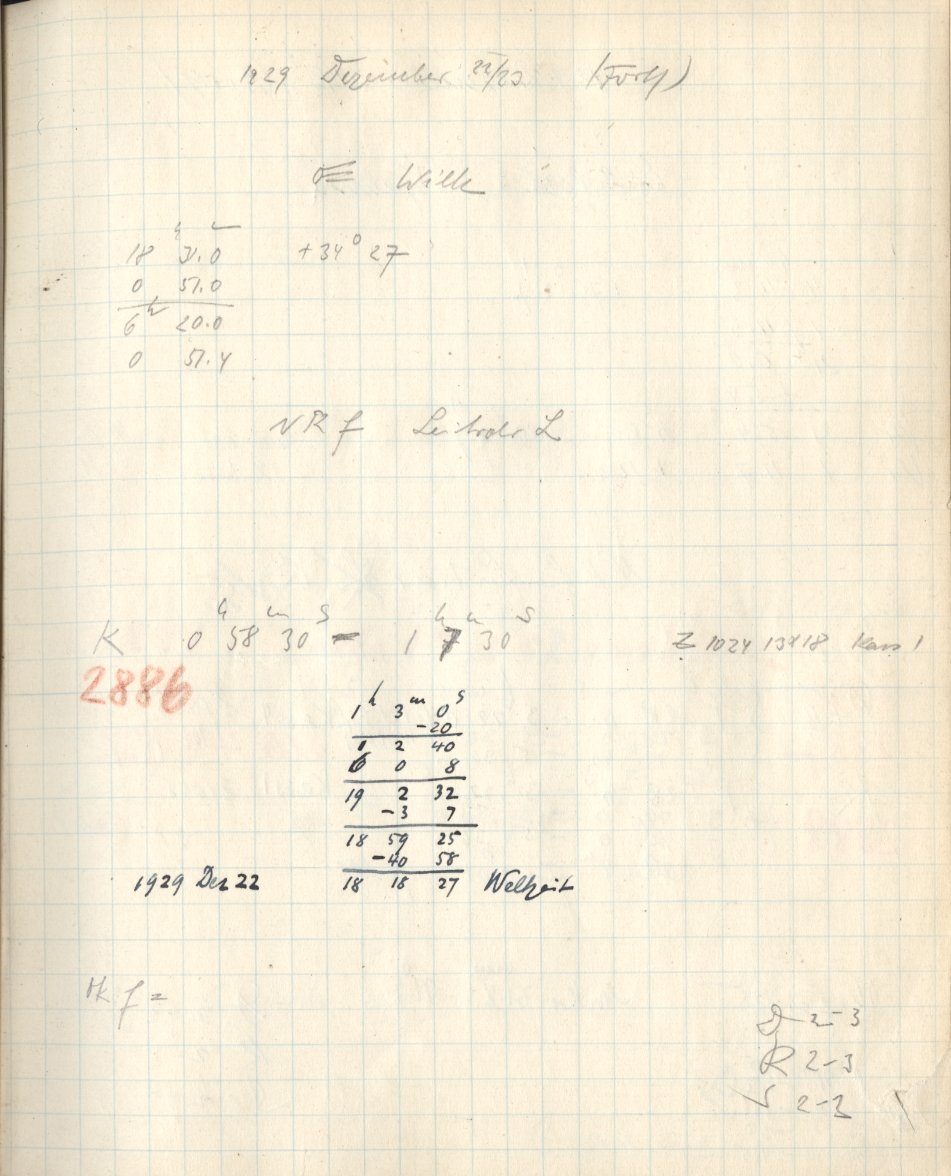 1929 Dezember 22/23 (Forts)
Wilk
h m
18 31.0 +34° 27
0 51.0
6 h 20.0
0 51.4
f Leitrohr L
K 0 h 58 m 30 s - 1 h 7 m 30 s Z 1024 13x18 Kass 1
2886
1 h 3 m 0 s
-20
1 2 40
6 0 8
19 2 32
-3 7
18 59 25
-40 58
1929 Dez 22 18 18 27 Weltzeit
f =
2-3
R 2-3
S 2-3